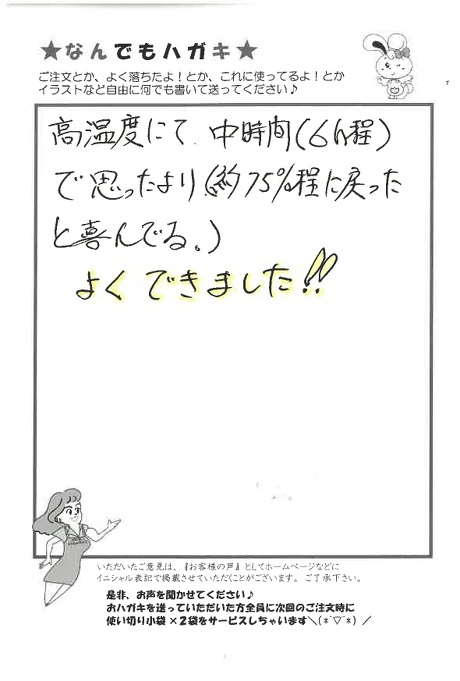 ★なんでもハガキ★
ご注文とか、よく落ちたよ！とか、これに使ってるよ！とか
イラストなど自由に何でも書いて送ってください♪
高温度にて、中時間(6h程)
で思ったより(約75%程に戻った
と喜んでる。)
よくできました!!
いただいたご意見は、『お客様の声』としてホームページなどに
イニシャル表記で掲載させていただくことがございます。ご了承下さい。
是非、お声を聞かせてください♪
おハガキを送っていただいた方全員に次回のご注文時に
使い切り小袋×2袋をサービスしちゃいます＼(*´▽`*)／